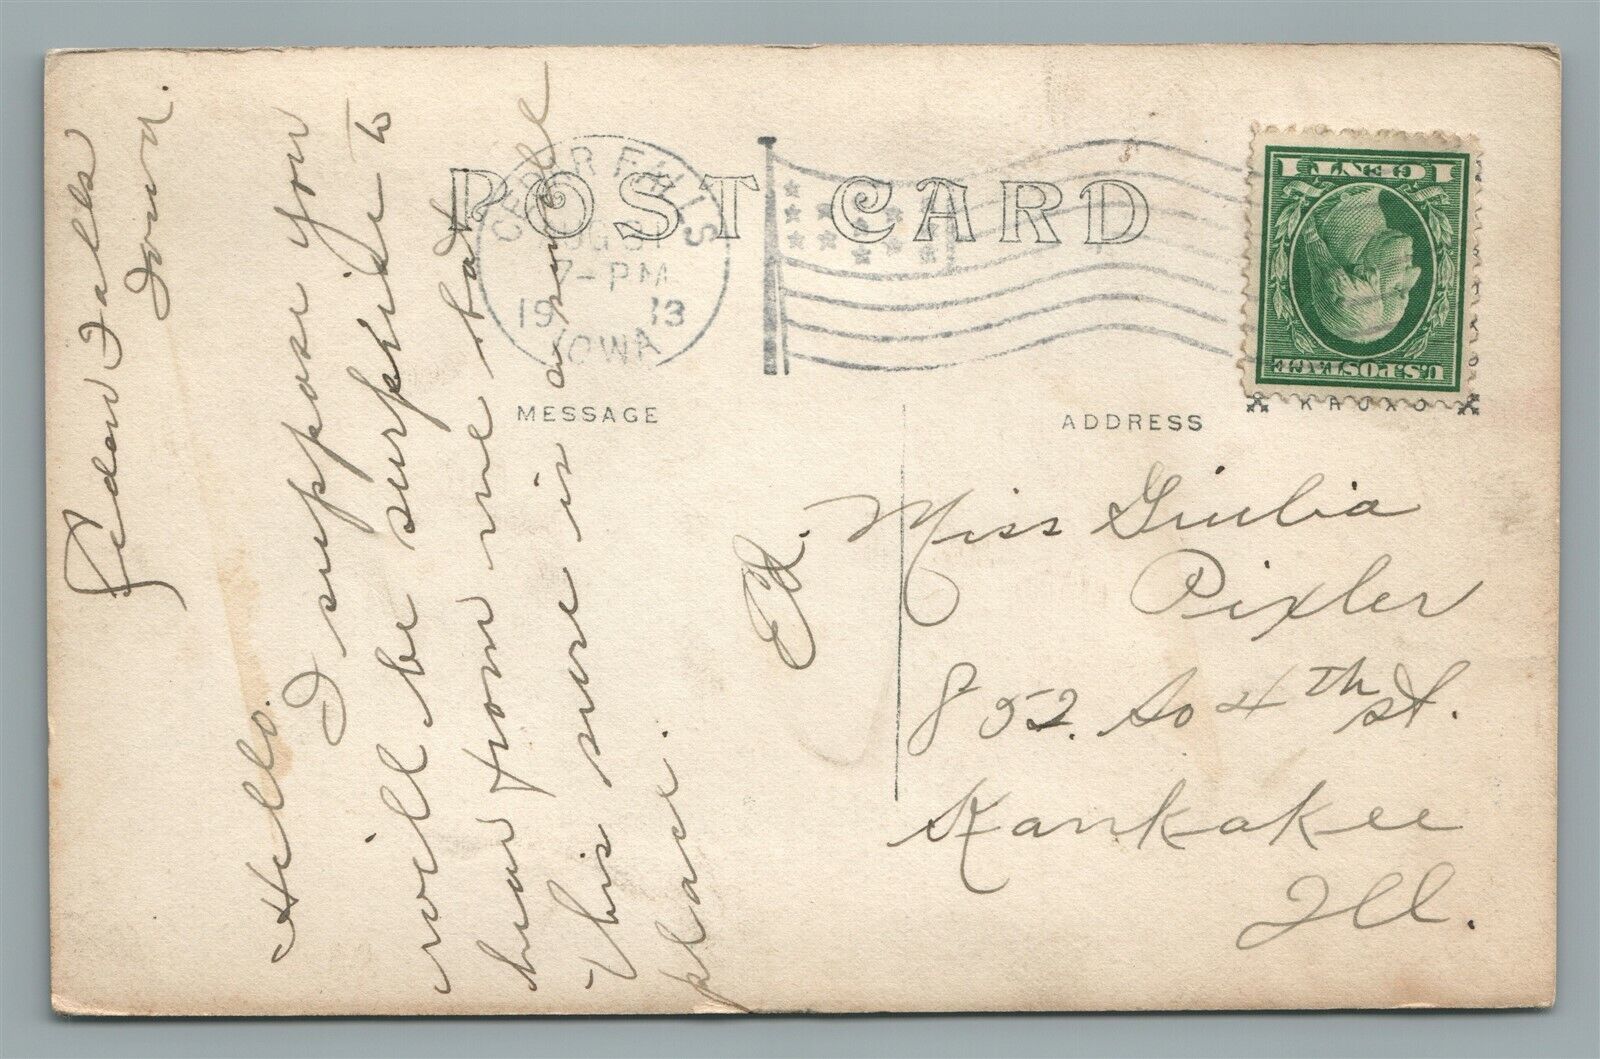 POST CARD
CEDAR FALLS
AUG
7-PM
19 13
IOWA
MESSAGE
ADDRESS
1 CENT 1
U.S. POSTAGE
Cedar Falls
Iowa.
Hello.
I suppose you
will be surprise to
hear from me but
this sure is a some
place.
Ed.
Miss Giulia
Pixler
852. So 4th St.
Kankakee
Ill.